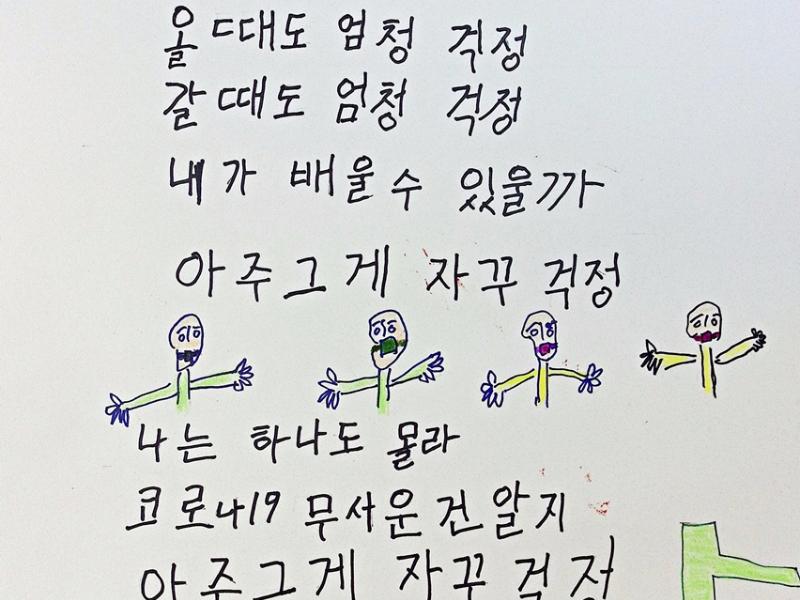 올 때도 엄청 걱정
갈 때도 엄청 걱정
내가 배울수 있울까
아주그게 자꾸 걱정
나는 하나도 몰라
코로나19 무서운건알지
아주그게 자꾸걱정